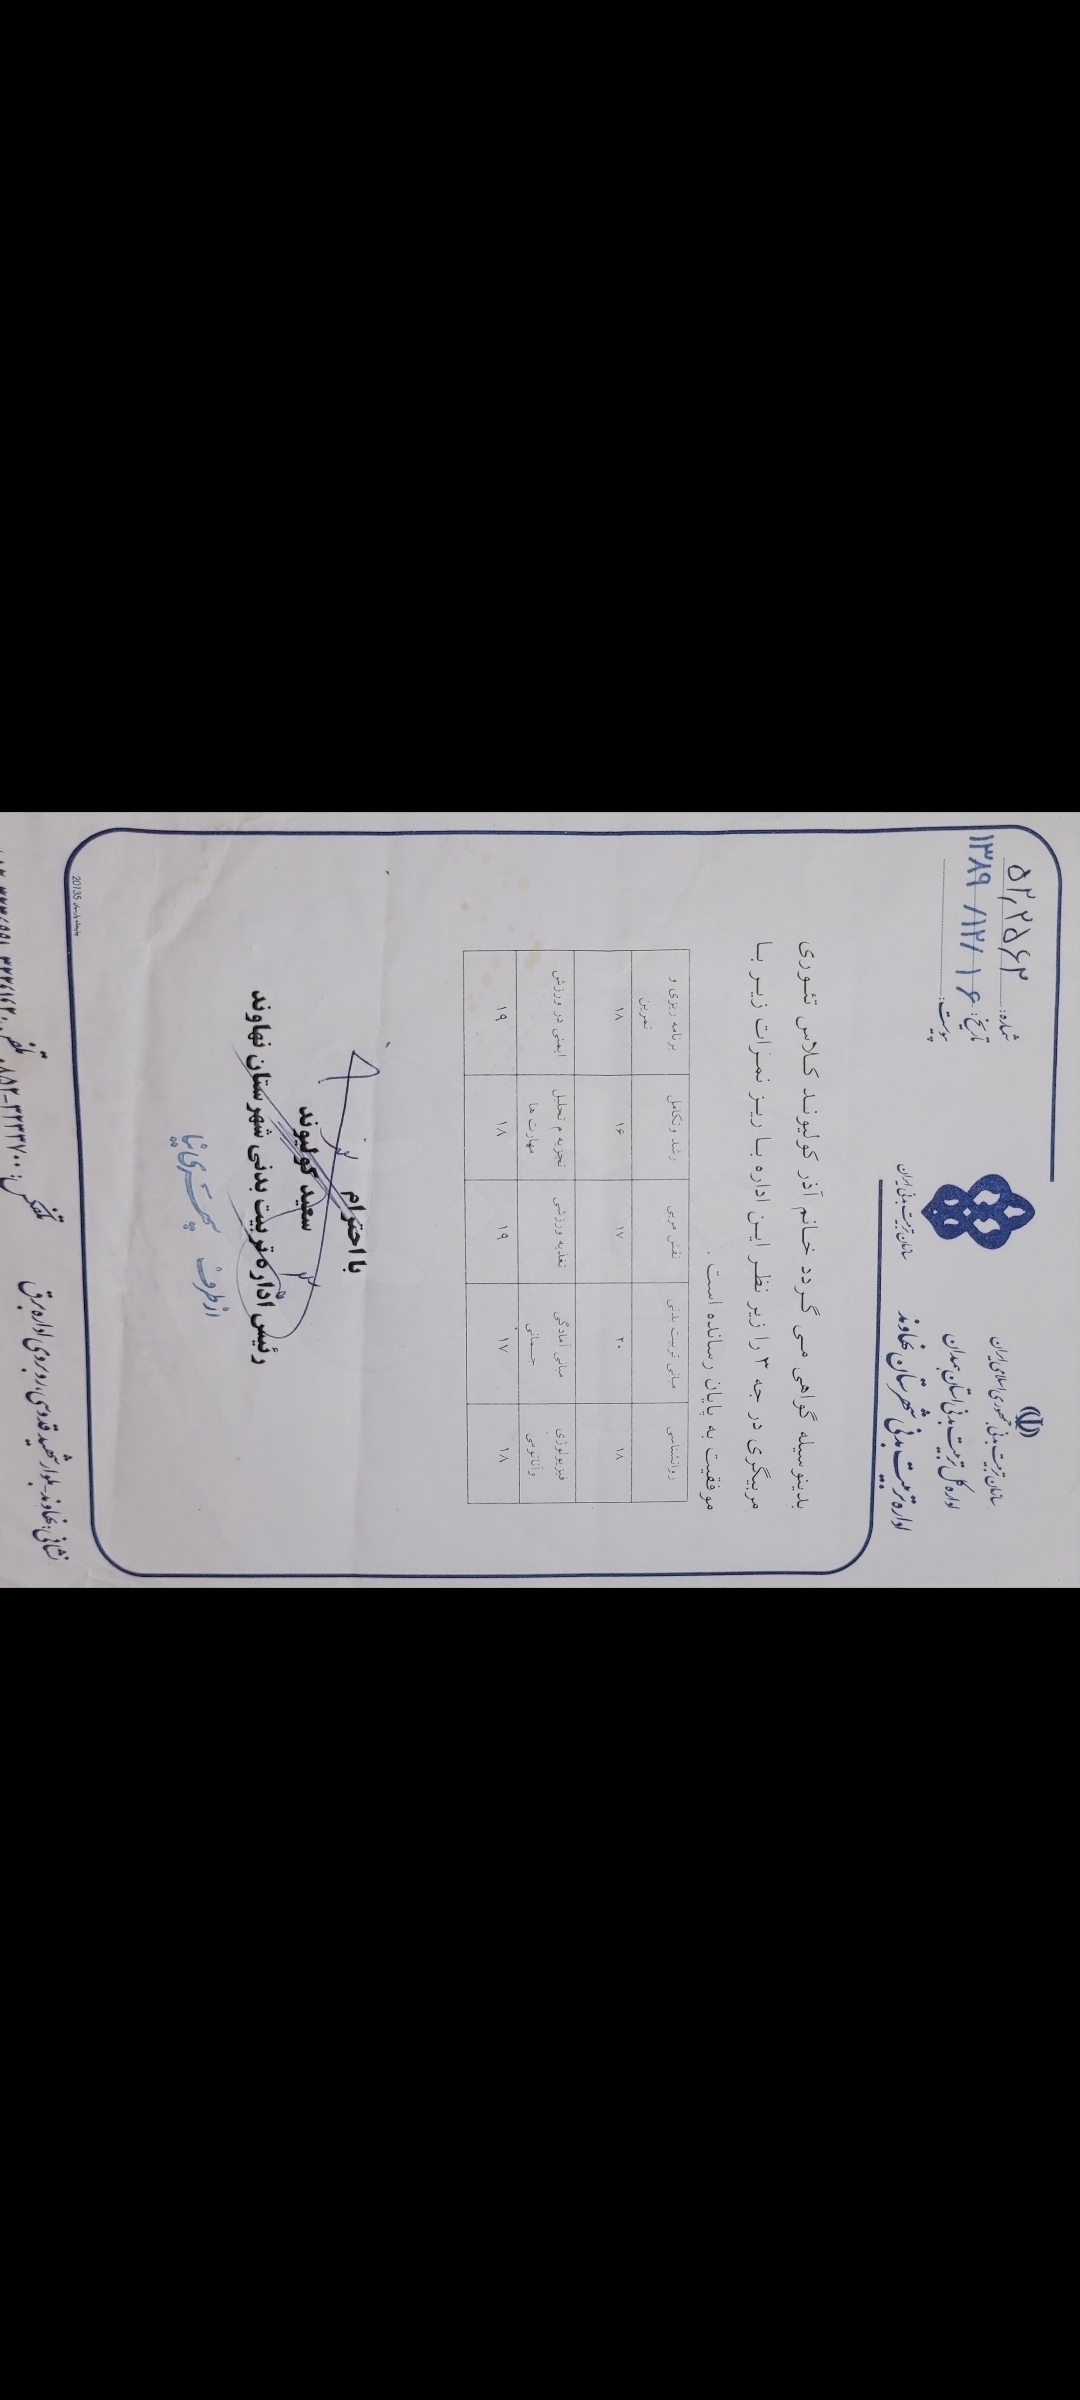 سازمان تربیت بدنی جمهوری اسلامی ایران
اداره کل تربیت بدنی استان همدان
اداره تربیت بدنی شهرستان نهاوند
سازمان تربیت بدنی ایران
شماره:
تاریخ: ۱۳۸۹/۱۲/۱۶
پیوست:
بدینوسیله گواهی می گردد خانم آذر کولیوند کلاس تئوری
مربیگری درجه ۳ را زیر نظر این اداره با ریز نمرات زیر با
موفقیت به پایان رسانده است .
روانشناسی	مبانی تربیت بدنی	نقش مربی	رشد و تکامل	برنامه ریزی و تمرین
۱۸	۲۰	۱۷	۱۶	۱۸
فیزیولوژی وآناتومی	مبانی آمادگی جسمانی	تغذیه ورزشی	تجزیه م تحلیل مهارت ها	ایمنی در ورزش
۱۸	۱۷	۱۹	۱۸	۱۹
با احترام
سعید کولیوند
رئیس اداره تربیت بدنی شهرستان نهاوند
از طرف
20135
نشانی: نهاوند-بلوار شهید قدوسی، روبروی اداره برق